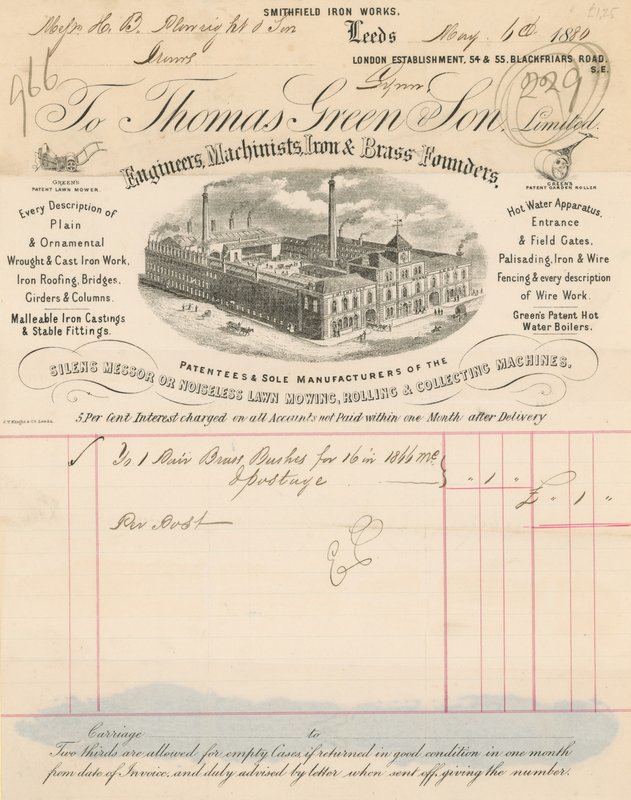 SMITHFIELD IRON WORKS,
£1.25
Messrs H. B. Plowright & Son
Leeds May 6th 1880
LONDON ESTABLISHMENT, 54 & 55. BLACKFRIARS ROAD.
S.E.
966
229
To Thomas Green & Son, Limited.
Engineers, Machinists, Iron & Brass Founders,
GREEN'S
PATENT LAWN MOWER.
GREEN'S
PATENT GARDEN ROLLER
Every Description of
Plain
& Ornamental
Wrought & Cast Iron Work,
Iron Roofing, Bridges,
Girders & Columns.
Malleable Iron Castings
& Stable Fittings.
Hot Water Apparatus,
Entrance
& Field Gates,
Palisading, Iron & Wire
Fencing & every description
of Wire Work.
Green's Patent Hot
Water Boilers.
PATENTEES & SOLE MANUFACTURERS OF THE
SILENS MESSOR OR NOISELESS LAWN MOWING, ROLLING & COLLECTING MACHINES.
5 Per Cent Interest charged on all Accounts not Paid within one Month after Delivery
To 1 Pair Brass Bushes for 16 in 1866 mc
& postage " 1 "
£ " 1 "
Per Post
Carriage to
Two thirds are allowed for empty Cases, if returned in good condition in one month
from date of Invoice, and duly advised by letter when sent off, giving the number.